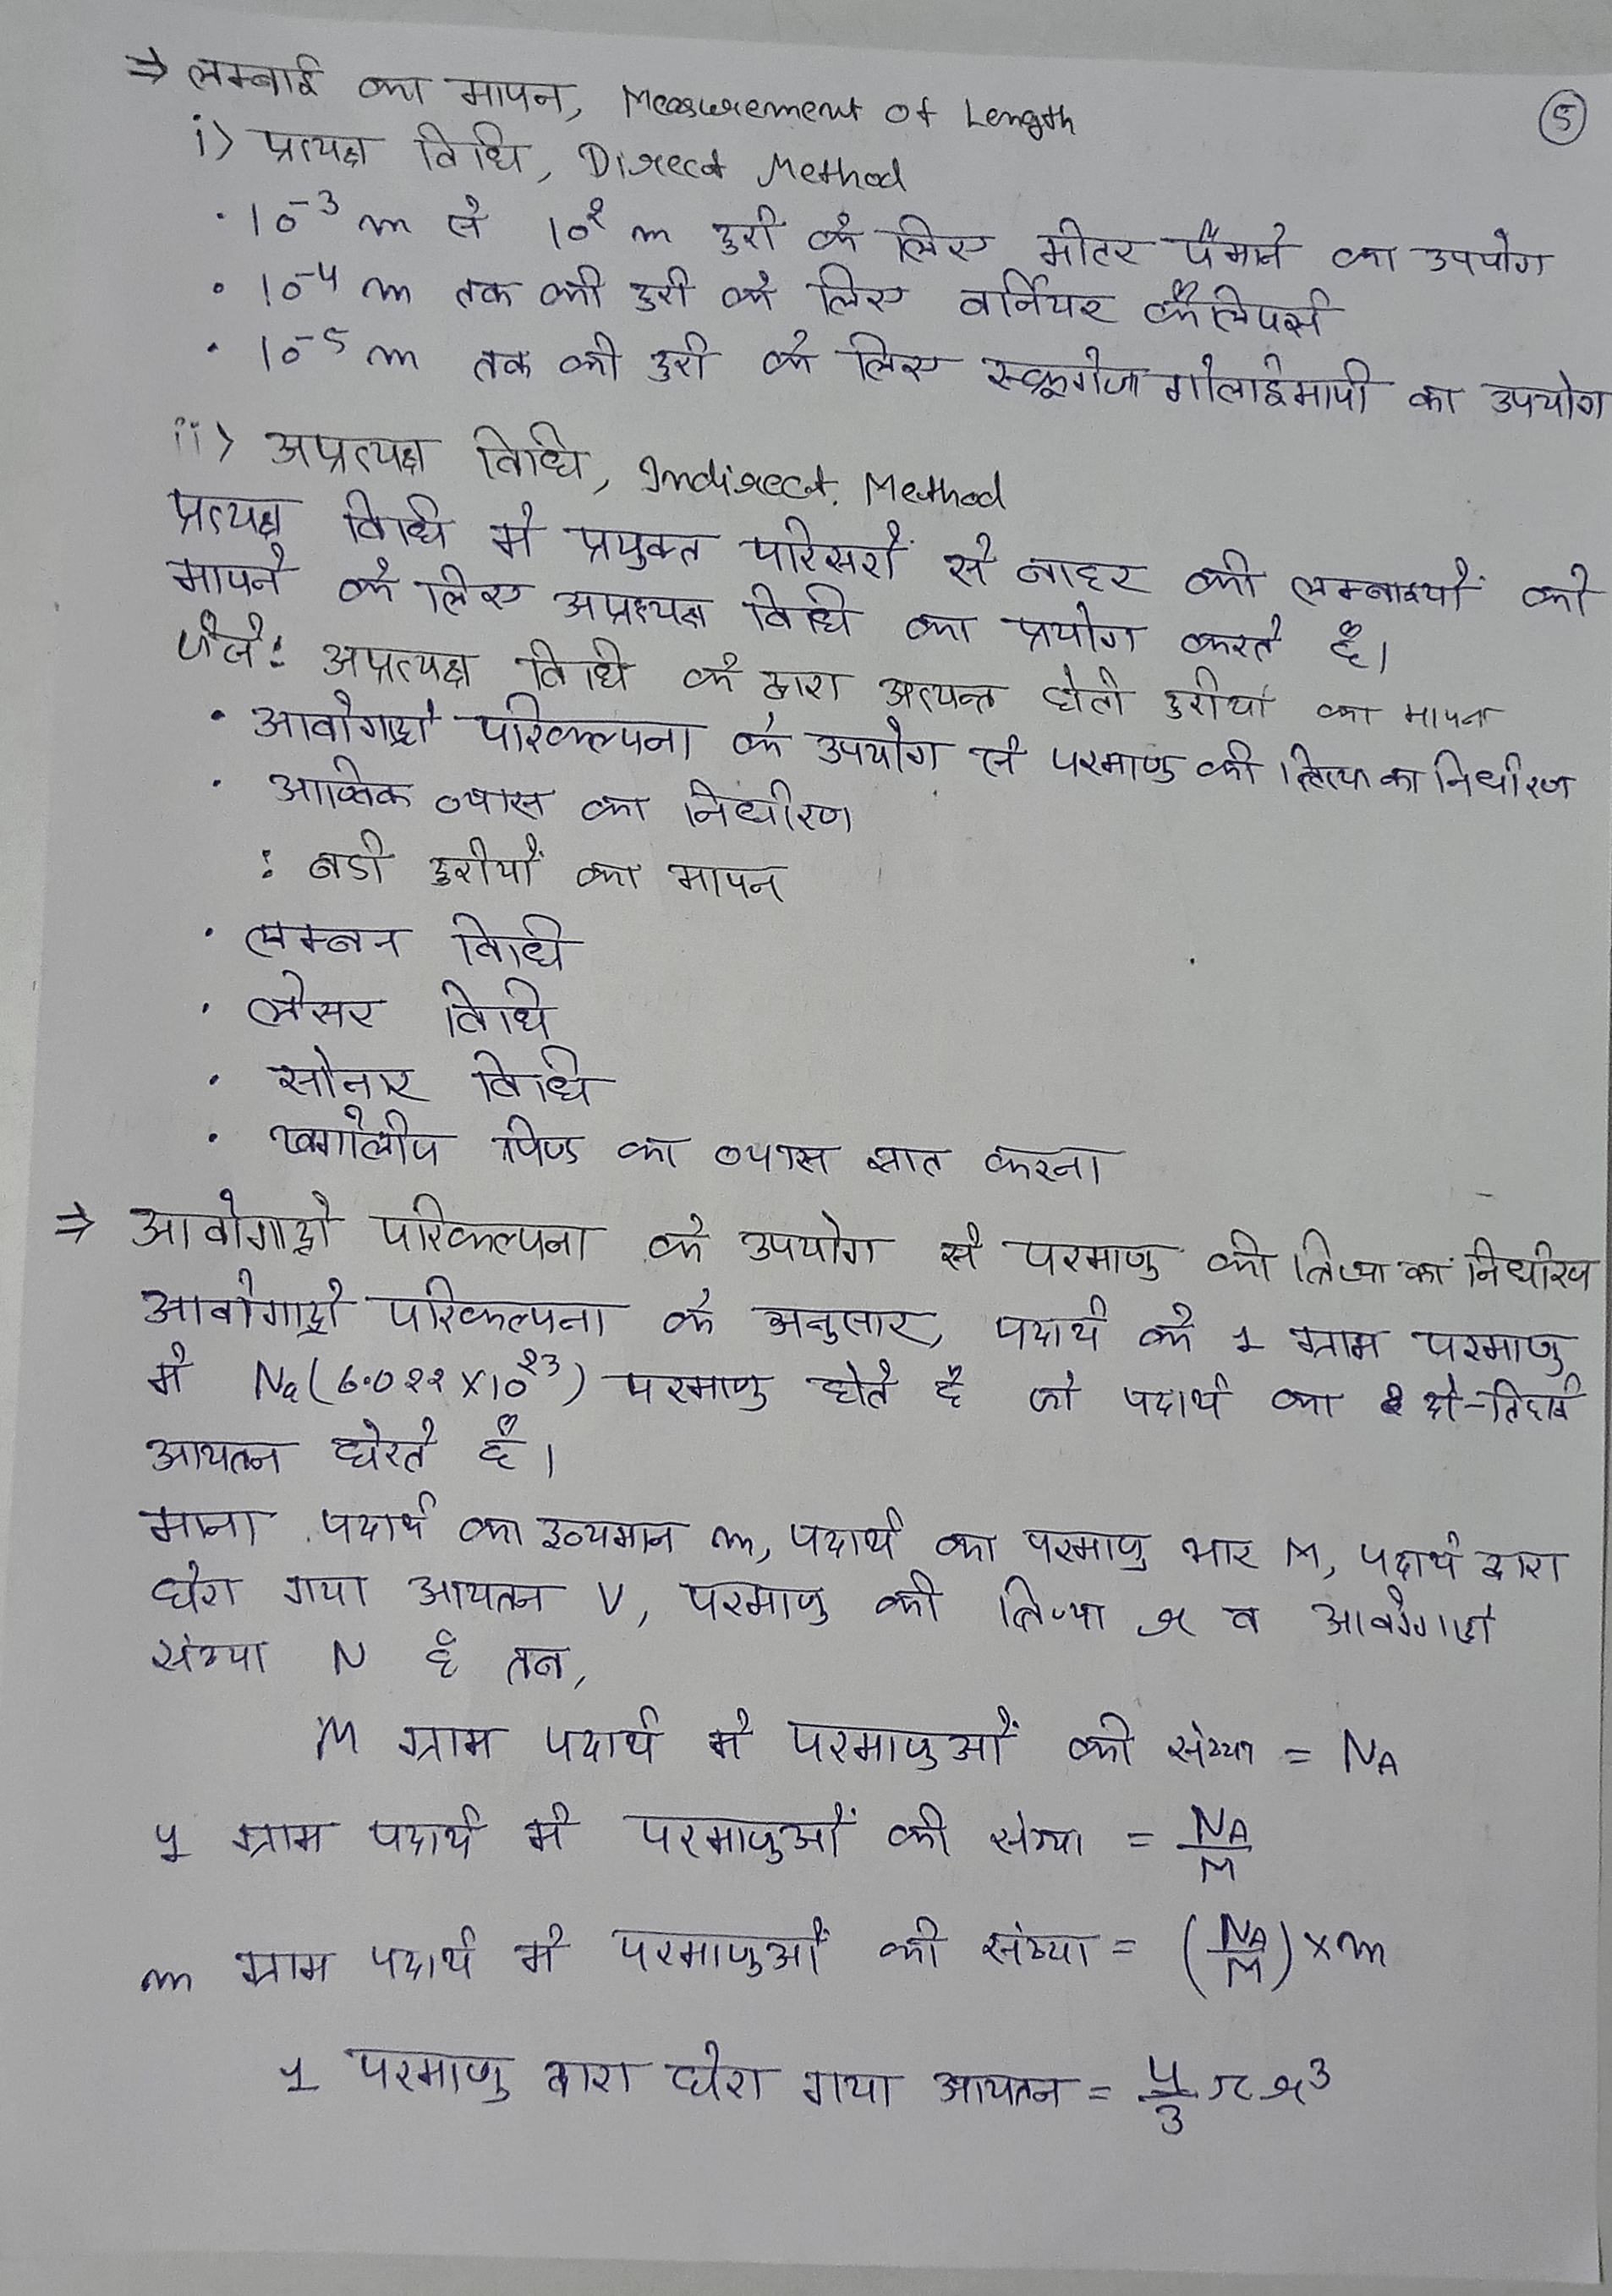 ⇒ लम्बाई का मापन, Measurement of Length
5
i> प्रत्यक्ष विधि, Direct Method
· 10⁻³ m से 10² m दुरी के लिए मीटर पैमाने का उपयोग
· 10⁻⁴ m तक की दुरी के लिए वर्नियर कैलिपर्स
· 10⁻⁵ m तक की दुरी के लिए स्क्रूगेज गोलाईमापी का उपयोग
ii> अप्रत्यक्ष विधि, Indirect. Method
प्रत्यक्ष विधि में प्रयुक्त परिसरों से बाहर की लम्बाइयों को
मापने के लिए अप्रत्यक्ष विधि का प्रयोग करते है।
जैसे: अप्रत्यक्ष विधि के द्वारा अत्यन्त छोटी दुरीयों का मापन
· आवोगाद्रो परिकल्पना के उपयोग से परमाणु की त्रिज्या का निर्धारण
· आण्विक व्यास का निर्धारण
: बडी दुरीयों का मापन
· लम्बन विधि
· लेसर विधि
· सोनार विधि
· खगोलीय पिण्ड का व्यास ज्ञात करना
⇒ आवोगाद्रो परिकल्पना के उपयोग से परमाणु की त्रिज्या का निर्धारण
आवोगाद्रो परिकल्पना के अनुसार, पदार्थ के 1 ग्राम परमाणु
में Na(6.022 X10²³) परमाणु होते है जो पदार्थ का दो-तिहाई
आयतन घेरते है।
माना पदार्थ का द्रव्यमान m, पदार्थ का परमाणु भार M, पदार्थ द्वारा
घेरा गया आयतन V, परमाणु की त्रिज्या r व आवोगाद्रो
संख्या N है तब,
M ग्राम पदार्थ में परमाणुओं की संख्या = Nᴀ
1 ग्राम पदार्थ में परमाणुओं की संख्या = Nᴀ/M
m ग्राम पदार्थ में परमाणुओं की संख्या = (Nᴀ/M) x m
1 परमाणु द्वारा घेरा गया आयतन = 4/3 πr³